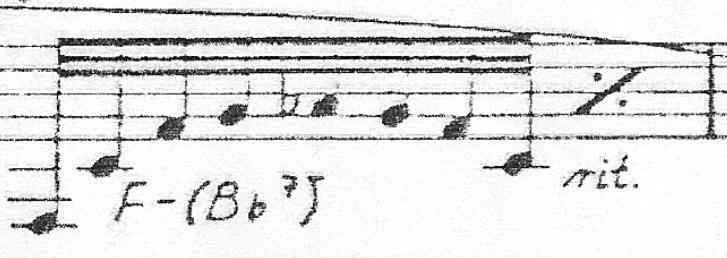 F-(Bb7)
rit.